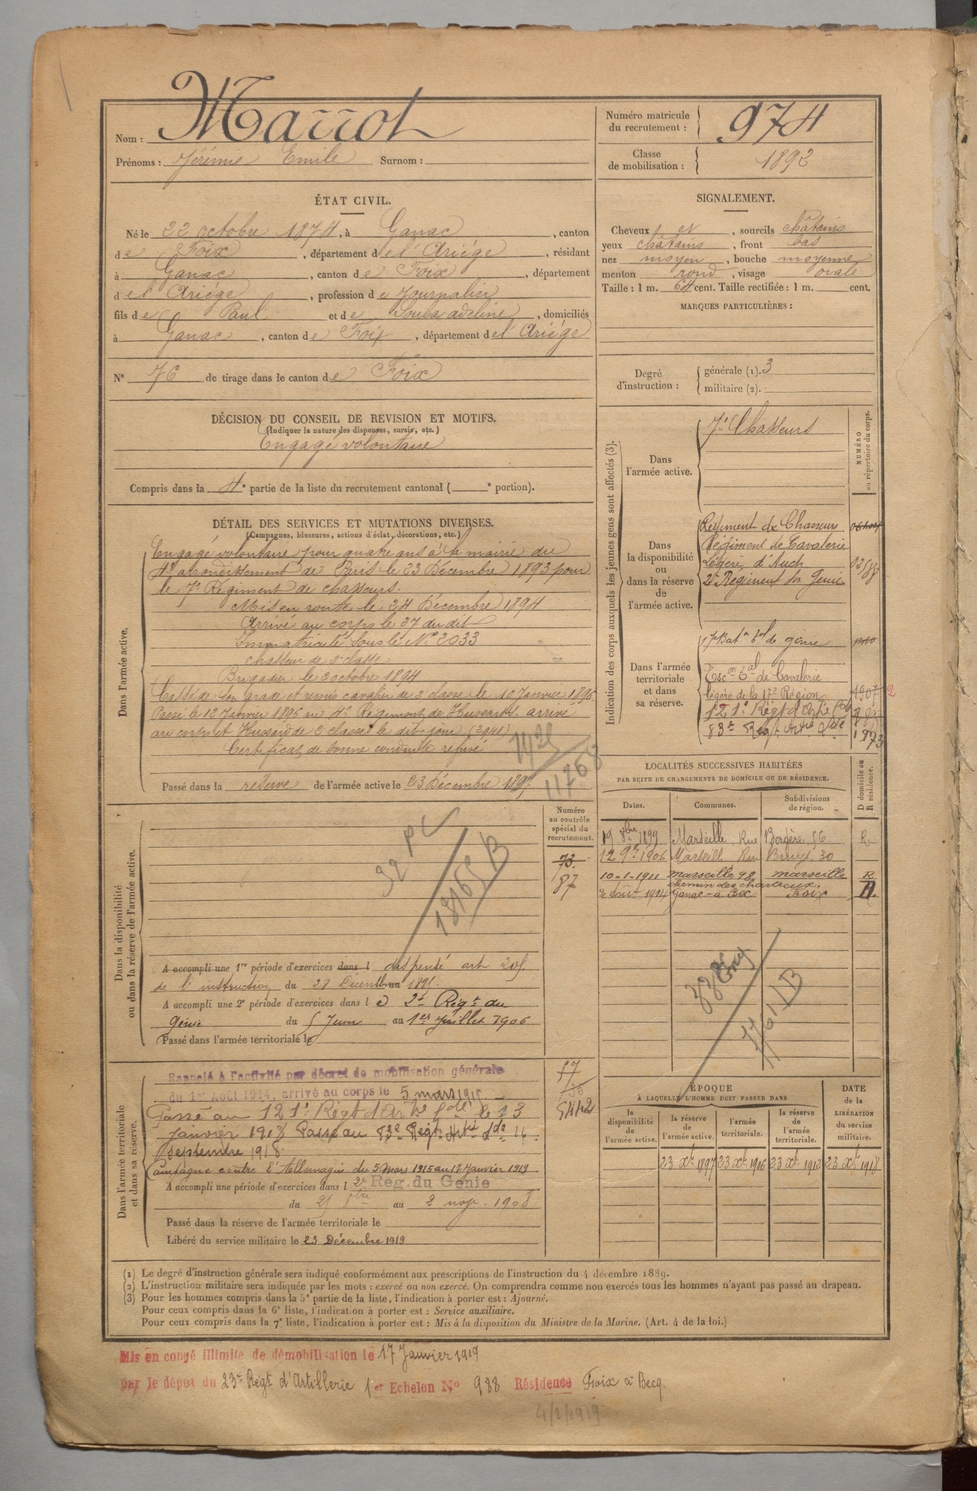 Nom : Marrot
Prénoms : Jérémie Emile Surnom :
Numéro matricule du recrutement : 974
Classe de mobilisation : 1893
ÉTAT CIVIL.
Né le 22 octobre 1874, à Ganac, canton
de Foix, département de l'Ariége, résidant
à Ganac, canton de Foix, département
de l'Ariége, profession de Journalier
fils de Paul et de Soula adeline, domiciliés
à Ganac, canton de Foix, département de l'Ariége
N° 76 de tirage dans le canton de Foix
SIGNALEMENT.
Cheveux et, sourcils châtains
yeux châtains, front bas
nez moyen, bouche moyenne
menton rond, visage ovale
Taille : 1 m. cent. Taille rectifiée : 1 m. cent.
MARQUES PARTICULIÈRES :
Degré d'instruction : générale (1). 3
militaire (2).
DÉCISION DU CONSEIL DE REVISION ET MOTIFS.
(Indiquer la nature des dispenses, sursis, etc.)
Engagé volontaire
Compris dans la 4e partie de la liste du recrutement cantonal ( e portion).
DÉTAIL DES SERVICES ET MUTATIONS DIVERSES.
(Campagnes, blessures, actions d'éclat, décorations, etc.)
Dans l'armée active.
Engagé volontaire pour quatre ans à la mairie du
4e arrondissement de Paris le 23 Décembre 1893 pour
le 7e Régiment de chasseurs.
Mis en route le 24 Décembre 1894
Arrivé au corps le 27 du dit
Immatriculé sous le N° 2033
chasseur de 2e classe
Brigadier le 3 octobre 1894
Cassé de son grade et remis cavalier de 2 classe le 10 Janvier 1896
Passé le 12 Janvier 1896 au 4e Régiment de Hussards arrivé
au corps et Hussard de 2 classe le dit jour (2941)
Certificat de bonne conduite refusé
7929
11768
Passé dans la réserve de l'armée active le 23 Décembre 1897
Indication des corps auxquels les jeunes gens sont affectés (3).
NUMÉRO au répertoire du corps.
Dans l'armée active.
7e Chasseurs
Dans la disponibilité ou dans la réserve de l'armée active.
Régiment de Chasseurs
Régiment de Cavalerie
Légère d'Auch
2e Régiment du Génie
Dans l'armée territoriale et dans sa réserve.
17e Bat on Tal de génie
Esc on Tal de Cavalerie
légère de la 17e Région
121e Regt d'Artie Lde
83e Régt Artie Lde
LOCALITÉS SUCCESSIVES HABITÉES
PAR SUITE DE CHANGEMENTS DE DOMICILE OU DE RÉSIDENCE.
Dates. Communes. Subdivisions de région. D domicile ou R résidence.
19 8bre 1899 Marseille Rue Bergère, 56 R.
12 9e 1906 Marseille Rue Bruys, 30
10-1-1911 marseille 98 marseille R
chemin des chartreux.
Ganac-à-Bec Foix D.
Numéro au contrôle spécial du recrutement.
76.
87
Dans la disponibilité ou dans la réserve de l'armée active.
32 PC
18165 B
A accompli une 1re période d'exercices dans l dispensé art
de l'instruction du 28 Décembre 1895
A accompli une 2e période d'exercices dans le 2e Régt du
Génie du 5 Juin au 1er Juillet 1906
Passé dans l'armée territoriale le
Dans l'armée territoriale et dans sa réserve.
Rappelé à l'activité par décret de mobilisation générale
du 1er Août 1914, arrivé au corps le 5 mars 1915
Passé au 121e Régt d'Artie Lde le 23
janvier 1918 Passé au 83e Régt Artie Lde 16
septembre 1918.
Campagne contre l'Allemagne du 5 mars 1915 au 17 Janvier 1919
A accompli une période d'exercices dans l 2e Reg. du Génie
du 25 8bre au 2 nov. 1908
Passé dans la réserve de l'armée territoriale le
Libéré du service militaire le 23 Décembre 1919
5442
ÉPOQUE À LAQUELLE L'HOMME DOIT PASSER DANS
la disponibilité de l'armée active. la réserve de l'armée active. l'armée territoriale. la réserve de l'armée territoriale. DATE de la LIBÉRATION du service militaire.
23 Xbre 1897 23 Xbre 1906 23 Xbre 1912 23 Xbre 1918
(1) Le degré d'instruction générale sera indiqué conformément aux prescriptions de l'instruction du 4 décembre 1889.
(2) L'instruction militaire sera indiquée par les mots : exercé ou non exercé. On comprendra comme non exercés tous les hommes n'ayant pas passé au drapeau.
(3) Pour les hommes compris dans la 5e partie de la liste, l'indication à porter est : Ajourné.
Pour ceux compris dans la 6e liste, l'indication à porter est : Service auxiliaire.
Pour ceux compris dans la 7e liste, l'indication à porter est : Mis à la disposition du Ministre de la Marine. (Art. 4 de la loi.)
Mis en congé illimité de démobilisation le 17 Janvier 1919
par le dépôt du 23e Régt d'Artillerie 1er Echelon N° 988 Résidence Foix à Becq
4/2/1919